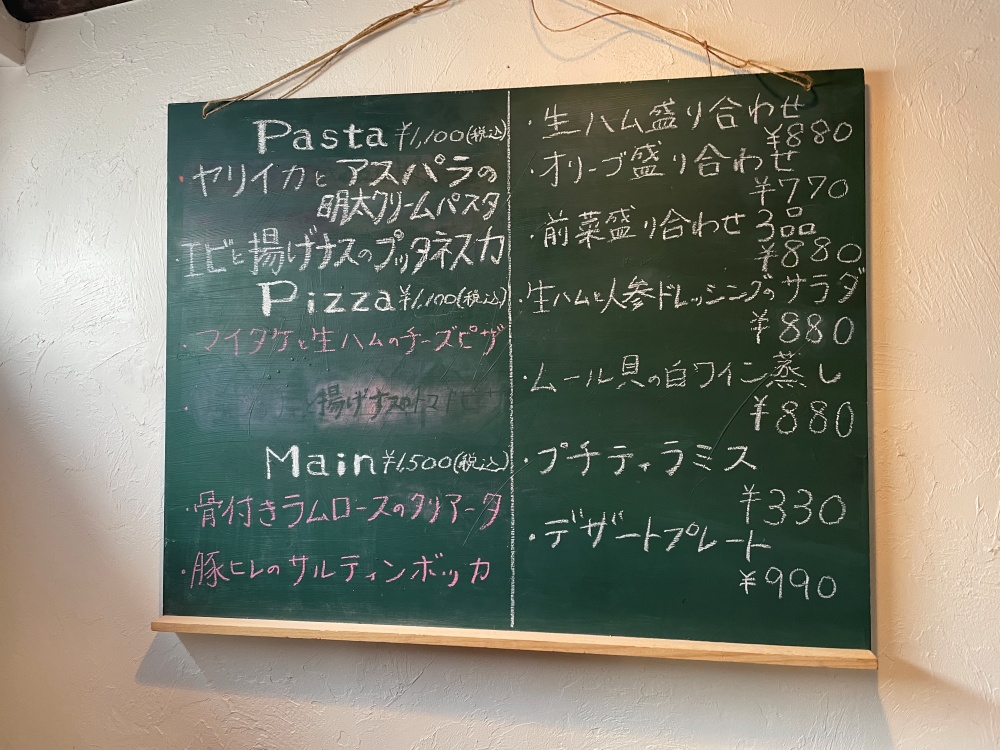 Pasta ¥1,100(税込)
・ヤリイカとアスパラの
明太クリームパスタ
・エビと揚げナスのプッタネスカ
Pizza ¥1,100(税込)
・マイタケと生ハムのチーズピザ
揚げナスの
Main ¥1,500(税込)
・骨付きラムロースのタリアータ
・豚ヒレのサルティンボッカ
・生ハム盛り合わせ
¥880
・オリーブ盛り合わせ
¥770
・前菜盛り合わせ 3品
¥880
・生ハムと人参ドレッシングのサラダ
¥880
・ムール貝の白ワイン蒸し
¥880
・プチティラミス
¥330
・デザートプレート
¥990